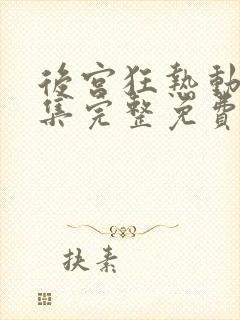 後宮狂熱動
集完整免費
扶素